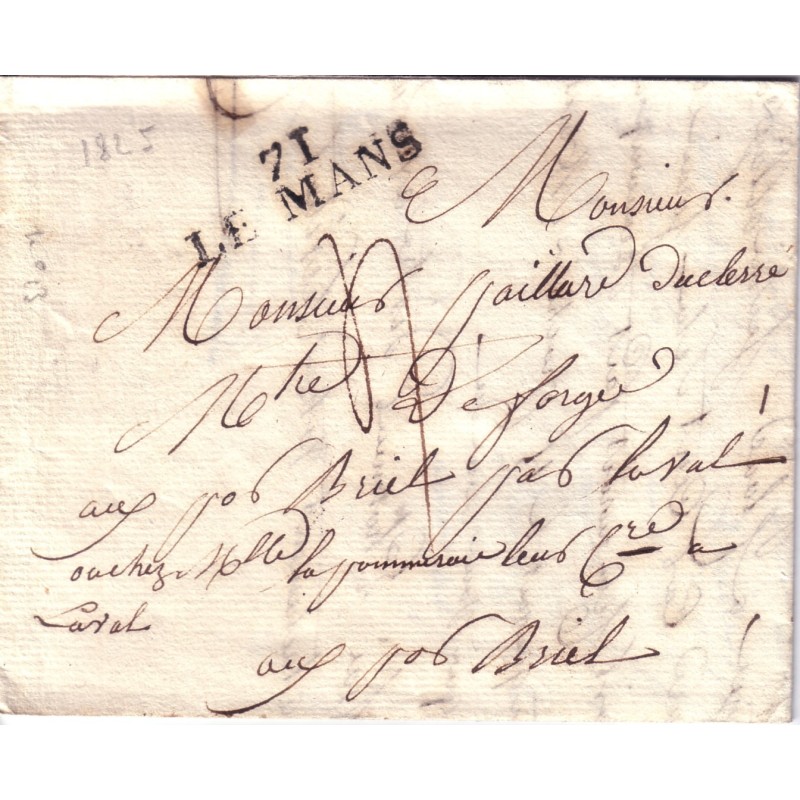 1825
71
LE MANS
Monsieur
Monsieur Gaillard Duclerré
Mtre De forge
aux por Briel par laval
ou chez Mlle la pommeraie leur Cre a
Laval
aux por Briel